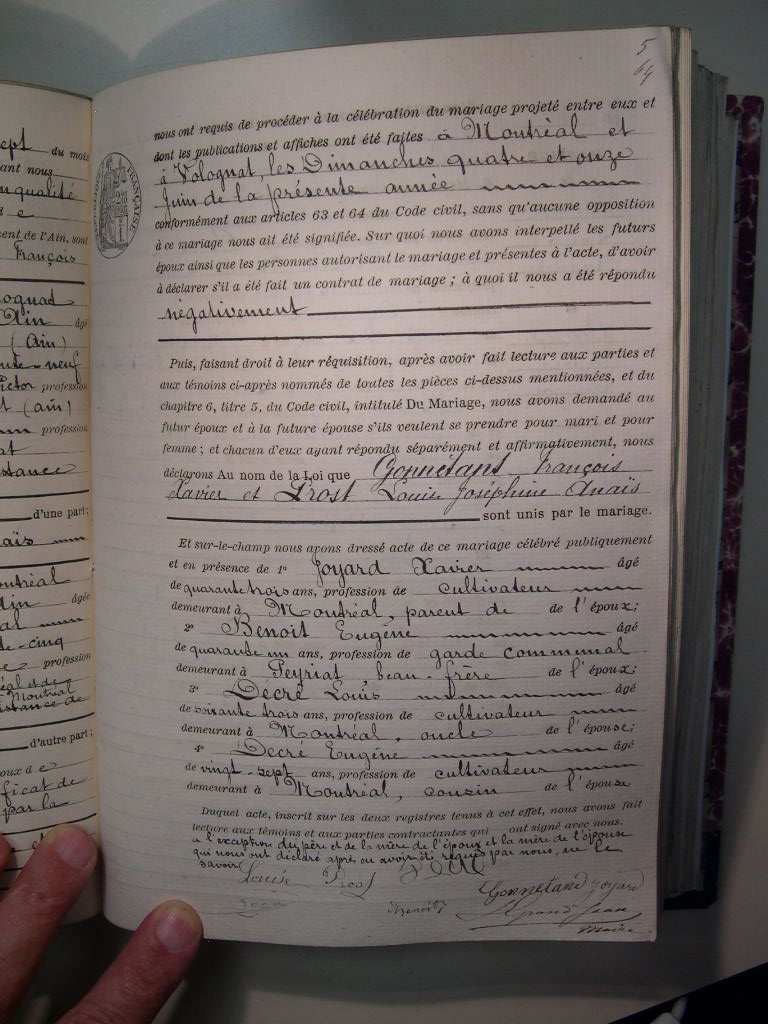 sept du mois
ant nous
n qualité
d e
ent de l'Ain, sont
François
ognad
Ain âgé
(Ain)
nte-neuf
ictor profession
t (ain)
profession
at
stance
d'une part;
aïs
ontréal
Ain âgée
al
te-cinq
e profession
éal et de
Montréal
istance de
d'autre part;
oux d e
ificat de
par la
et
5
64
RÉPUBLIQUE FRANÇAISE
nous ont requis de procéder à la célébration du mariage projeté entre eux et
dont les publications et affiches ont été faites à Montréal et
à Volognat, les Dimanches quatre et onze
Juin de la présente année
conformément aux articles 63 et 64 du Code civil, sans qu'aucune opposition
à ce mariage nous ait été signifiée. Sur quoi nous avons interpellé les futurs
époux ainsi que les personnes autorisant le mariage et présentes à l'acte, d'avoir
à déclarer s'il a été fait un contrat de mariage; à quoi il nous a été répondu
négativement
Puis, faisant droit à leur réquisition, après avoir fait lecture aux parties et
aux témoins ci-après nommés de toutes les pièces ci-dessus mentionnées, et du
chapitre 6, titre 5, du Code civil, intitulé Du Mariage, nous avons demandé au
futur époux et à la future épouse s'ils veulent se prendre pour mari et pour
femme; et chacun d'eux ayant répondu séparément et affirmativement, nous
déclarons Au nom de la Loi que Gonnetans François
Xavier et Prost Louise Joséphine Anaïs
sont unis par le mariage.
Et sur-le-champ nous avons dressé acte de ce mariage célébré publiquement
et en présence de 1º Joyard Xavier âgé
de quarante trois ans, profession de cultivateur
demeurant à Montréal, parent de de l'époux;
2º Benoit Eugène âgé
de quarante un ans, profession de garde communal
demeurant à Peyriat, beau-frère de l'époux;
3º Decré Louis âgé
de soixante trois ans, profession de cultivateur
demeurant à Montréal, oncle de l'épouse;
4º Decré Eugène âgé
de vingt-sept ans, profession de cultivateur
demeurant à Montréal, cousin de l'épouse
Duquel acte, inscrit sur les deux registres tenus à cet effet, nous avons fait
lecture aux témoins et aux parties contractantes qui ont signé avec nous.
a l'exception du père et de la mère de l'époux et la mère de l'épouse
qui nous ont déclaré après en avoir été requis par nous, ne le
savoir
Louise Prost
Gonnetand Joyard
Benoit
Maire